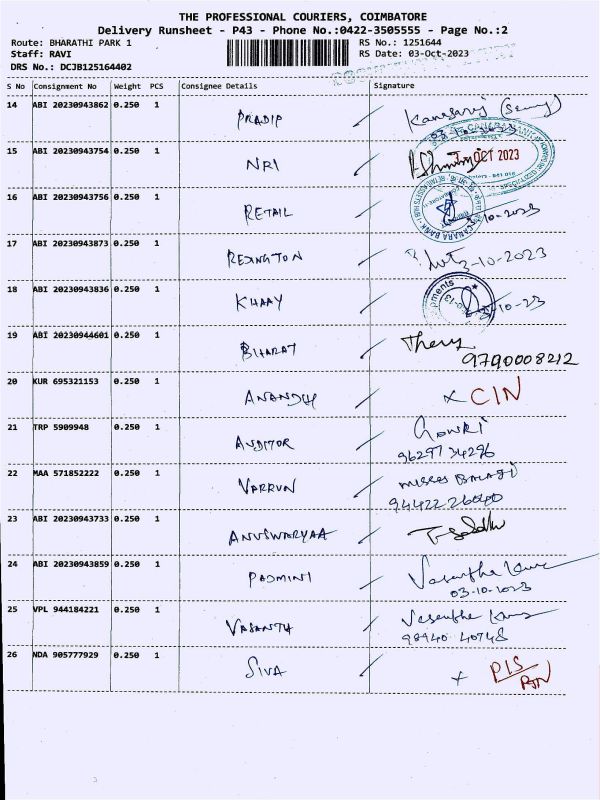 THE PROFESSIONAL COURIERS, COIMBATORE
Delivery Runsheet - P43 - Phone No.:0422-3505555 - Page No.:2
Route: BHARATHI PARK 1 RS No.: 1251644
Staff: RAVI RS Date: 03-Oct-2023
DRS No.: DCJB125164402
S No Consignment No Weight PCS Consignee Details Signature
14 ABI 20230943862 0.250 1 PRADIP
15 ABI 20230943754 0.250 1 NRI 3 OCT 2023
16 ABI 20230943756 0.250 1 RETAIL
CANARA BANK
17 ABI 20230943873 0.250 1 REXINGTON 3-10-2023
18 ABI 20230943836 0.250 1 KHAAY
19 ABI 20230944601 0.250 1 BHARAT
9790008212
20 KUR 695321153 0.250 1 ANANDH × CIN
21 TRP 5909948 0.250 1 AUDITOR Gowri
9629734296
22 MAA 571852222 0.250 1 VARRUN
23 ABI 20230943733 0.250 1 ANUSWARYAA
24 ABI 20230943859 0.250 1 PADMINI
03-10-2023
25 VPL 944184221 0.250 1 VASANTH
98940 40748
26 NDA 905777929 0.250 1 SIVA